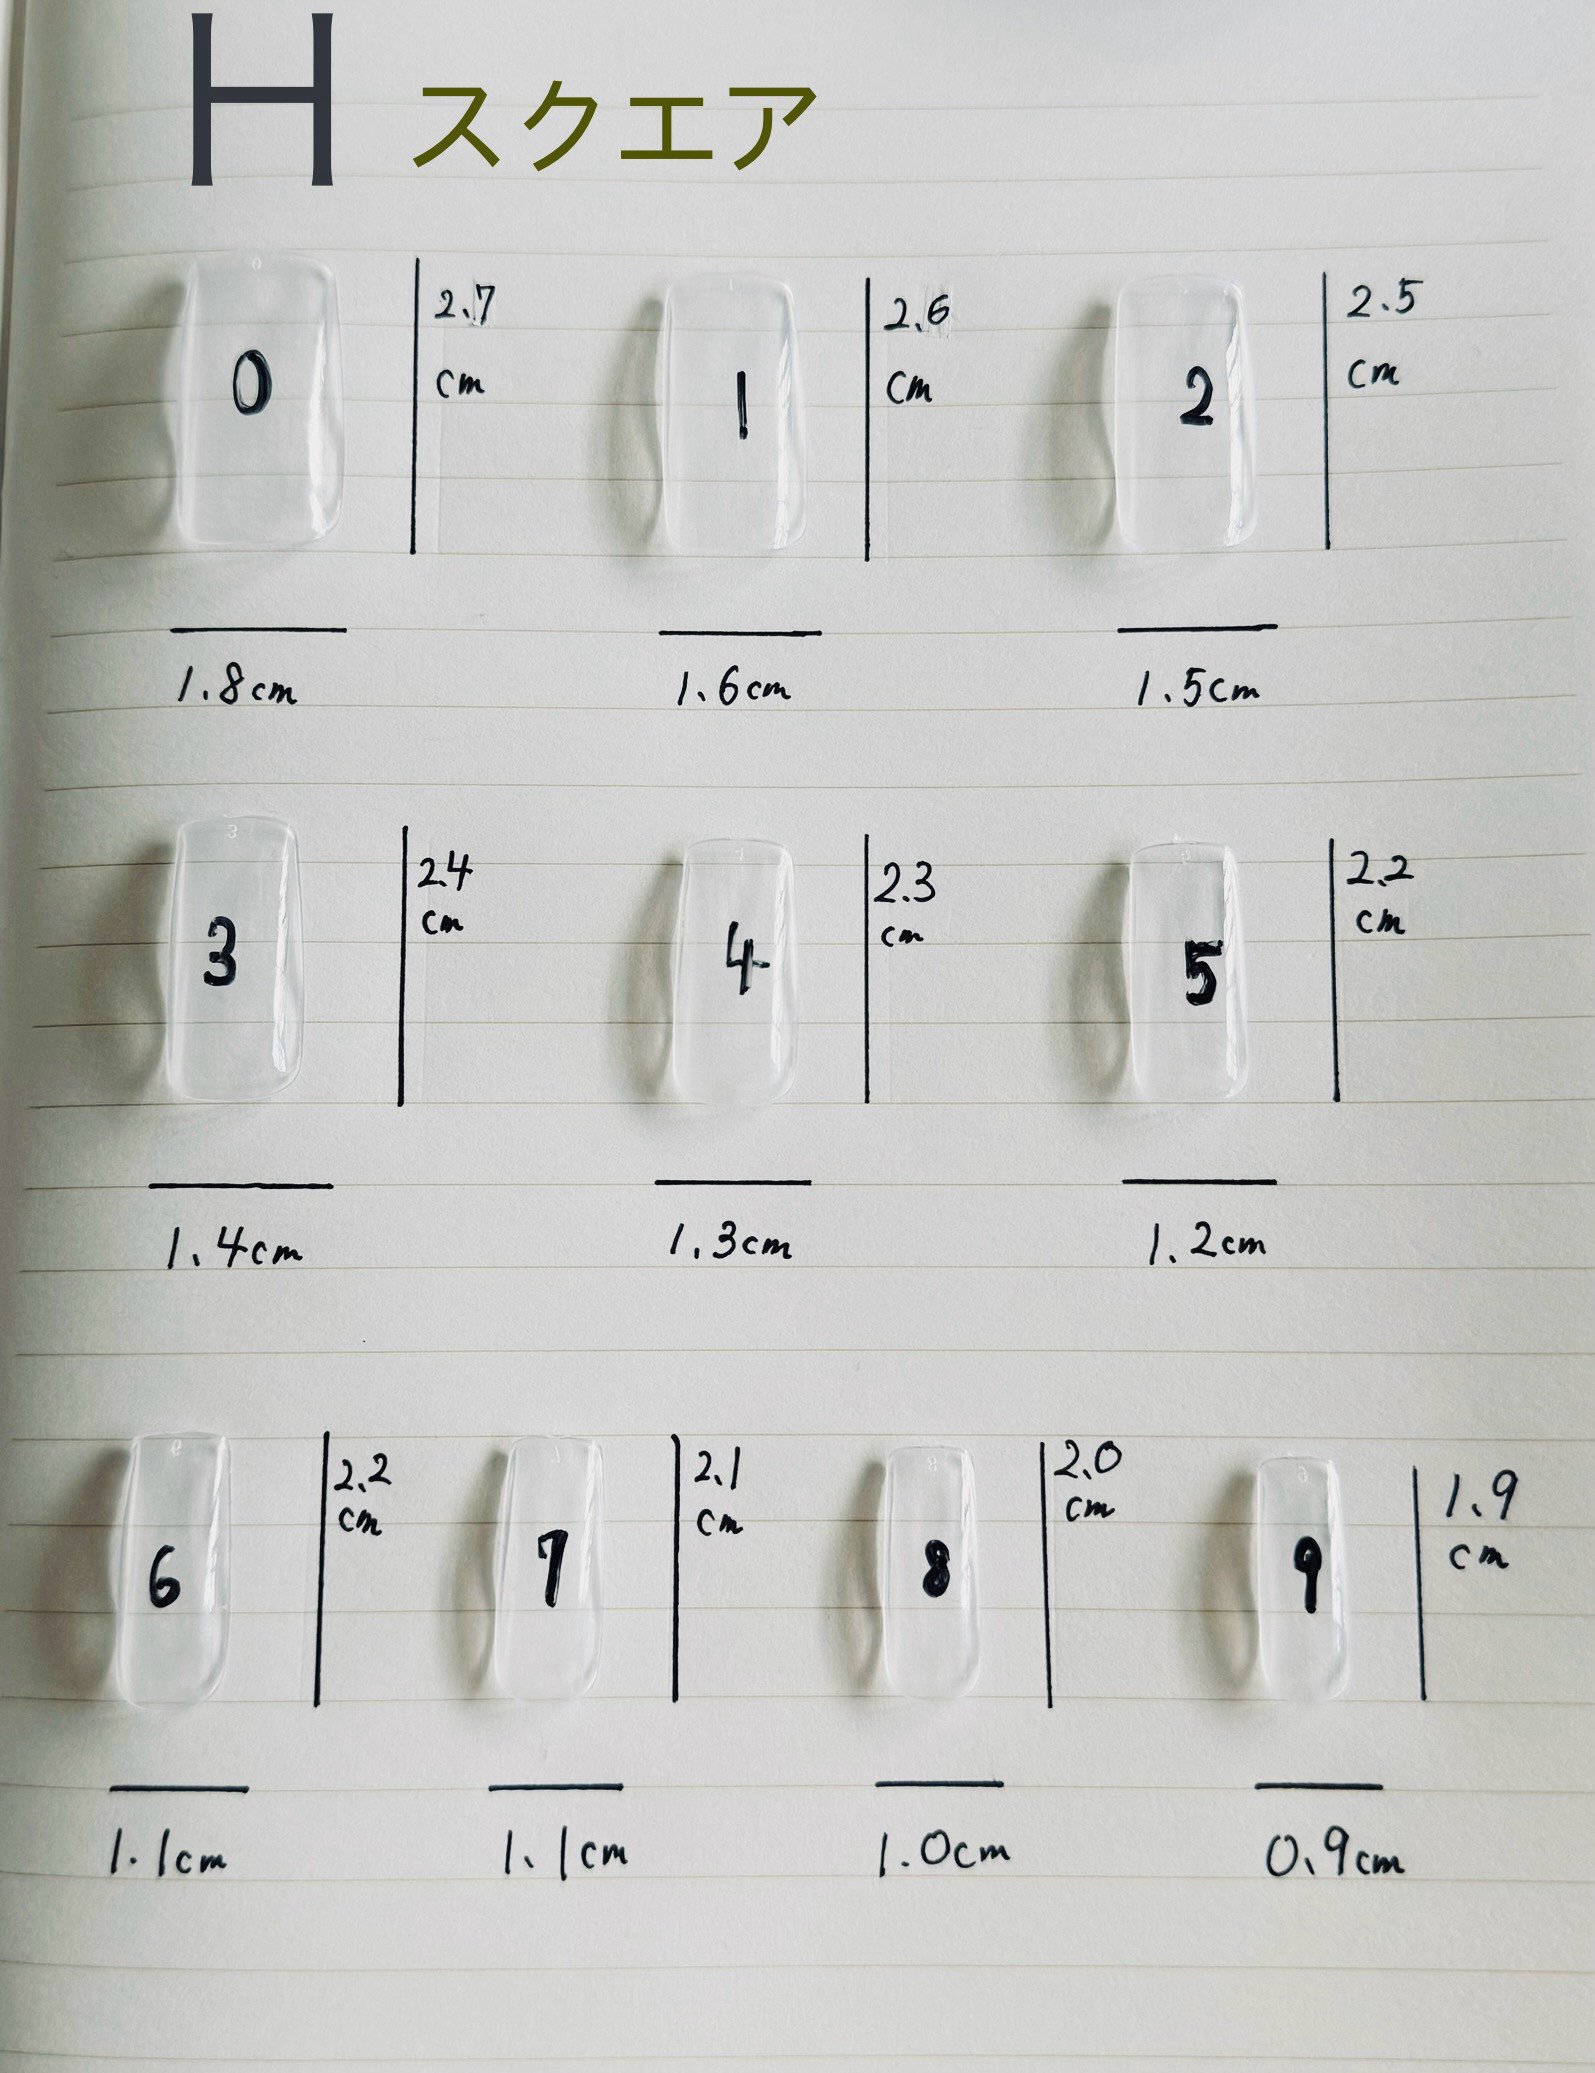 H スクエア
0
2.7
cm
1
2.6
cm
2
2.5
cm
1.8cm
1.6cm
1.5cm
3
2.4
cm
4
2.3
cm
5
2.2
cm
1.4cm
1.3cm
1.2cm
6
2.2
cm
7
2.1
cm
8
2.0
cm
9
1.9
cm
1.1cm
1.1cm
1.0cm
0.9cm